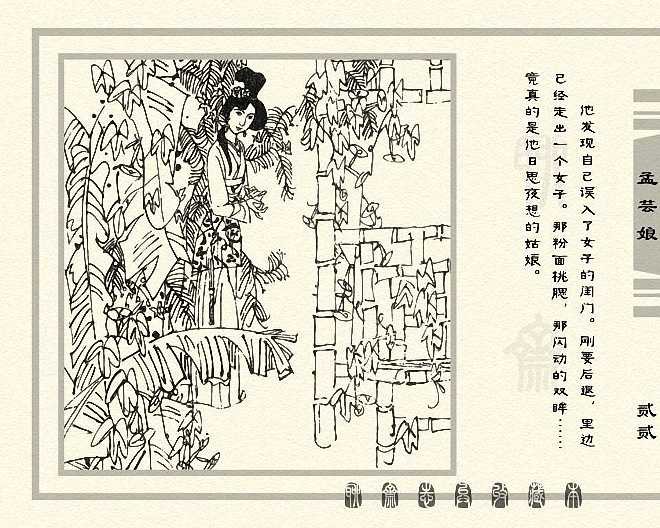 他发现自己误入了女子的闺门。刚要后退，里边
已经走出一个女子。那粉面桃腮，那闪动的双眸……
竟真的是他日思夜想的姑娘。
孟芸娘
贰贰
聊斋志异收藏本